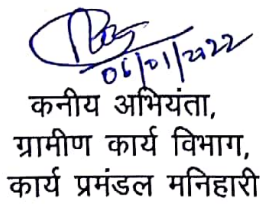 06/01/2022
कनीय अभियंता,
ग्रामीण कार्य विभाग,
कार्य प्रमंडल मनिहारी